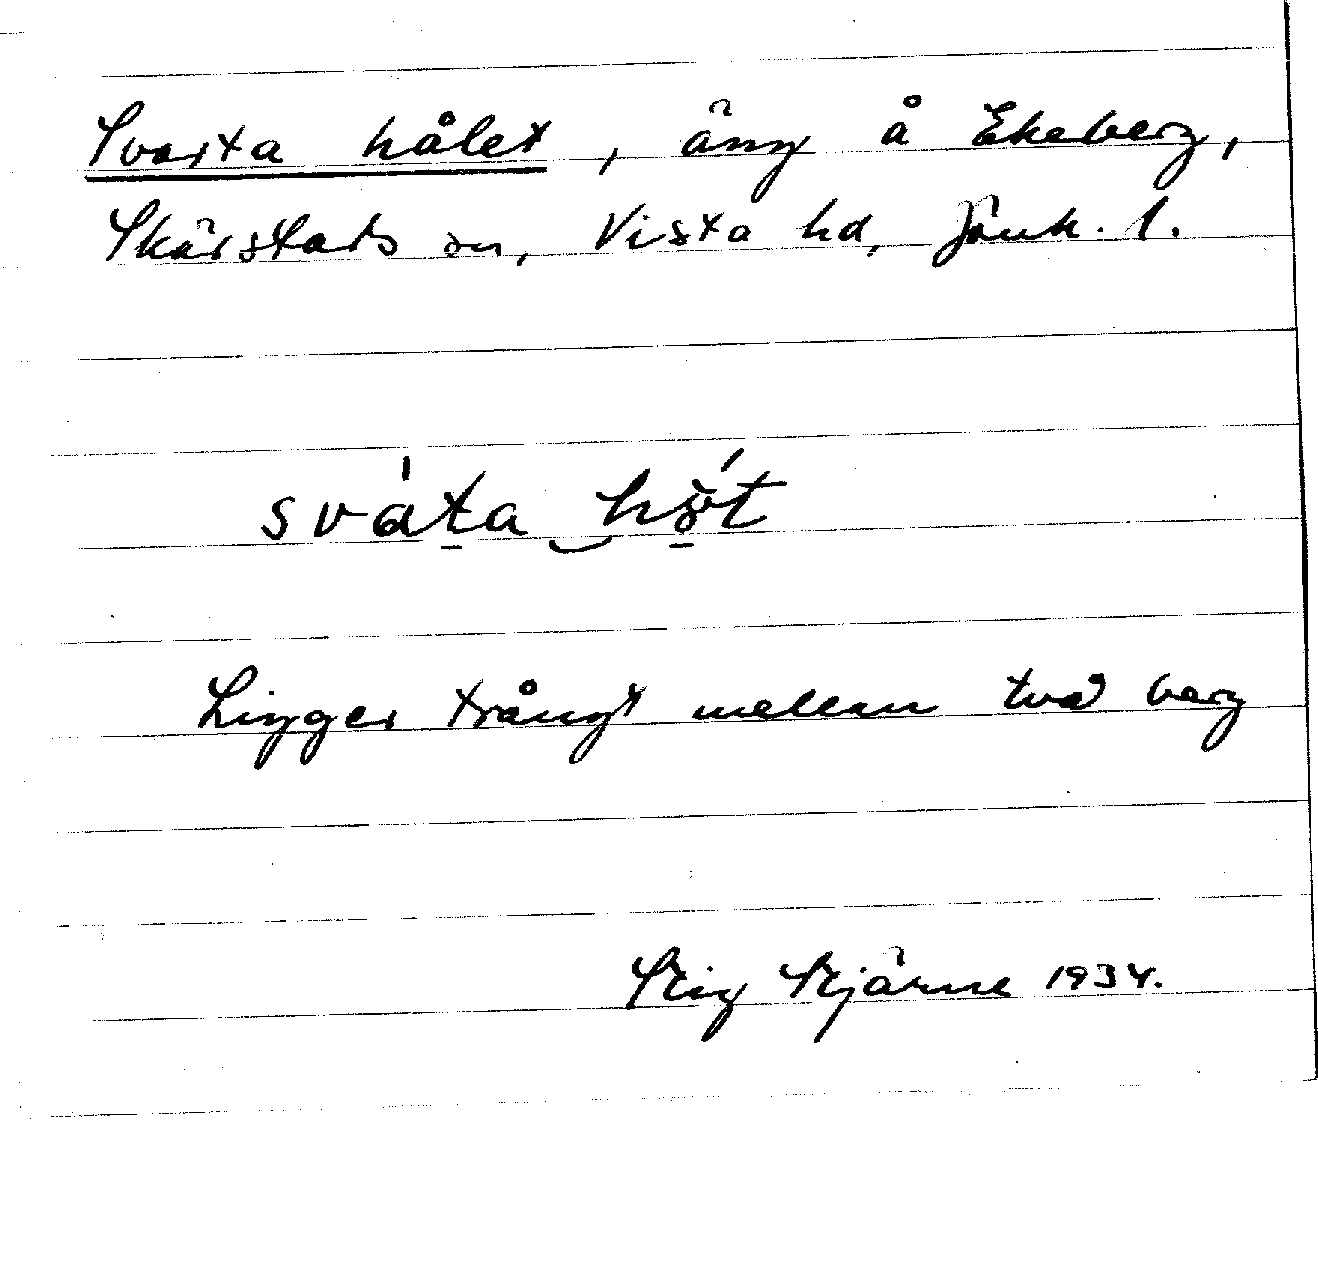 Svarta hålet, äng å Ekeberg,
Skärstads sn, Vista hd, Jönk. l.
sváta hö́t
Ligger trångt mellan två berg
Stig Stjärne 1934.